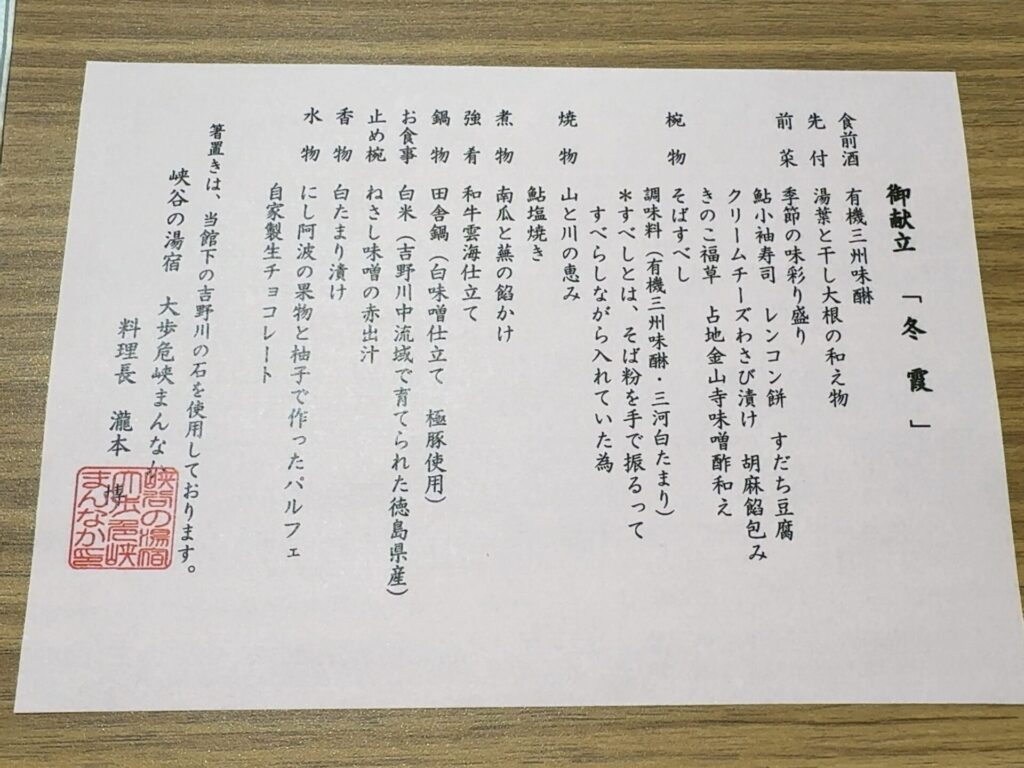 御献立 「冬霞」
食前酒 有機三州味醂
先付 湯葉と干し大根の和え物
前菜 季節の味彩り盛り
鮎小袖寿司 レンコン餅 すだち豆腐
クリームチーズわさび漬け 胡麻餡包み
きのこ福草 占地金山寺味噌酢和え
椀物 そばすべし
調味料（有機三州味醂・三河白たまり）
＊すべしとは、そば粉を手で振るって
すべらしながら入れていた為
焼物 山と川の恵み
鮎塩焼き
煮物 南瓜と蕪の餡かけ
強肴 和牛雲海仕立て
鍋物 田舎鍋（白味噌仕立て 極豚使用）
お食事 白米（吉野川中流域で育てられた徳島県産）
止め椀 ねさし味噌の赤出汁
香物 白たまり漬け
水物 にし阿波の果物と柚子で作ったパルフェ
自家製生チョコレート
箸置きは、当館下の吉野川の石を使用しております。
峡谷の湯宿 大歩危峡まんなか
料理長 瀧本 博
峡谷の湯宿
大歩危峡
まんなか印